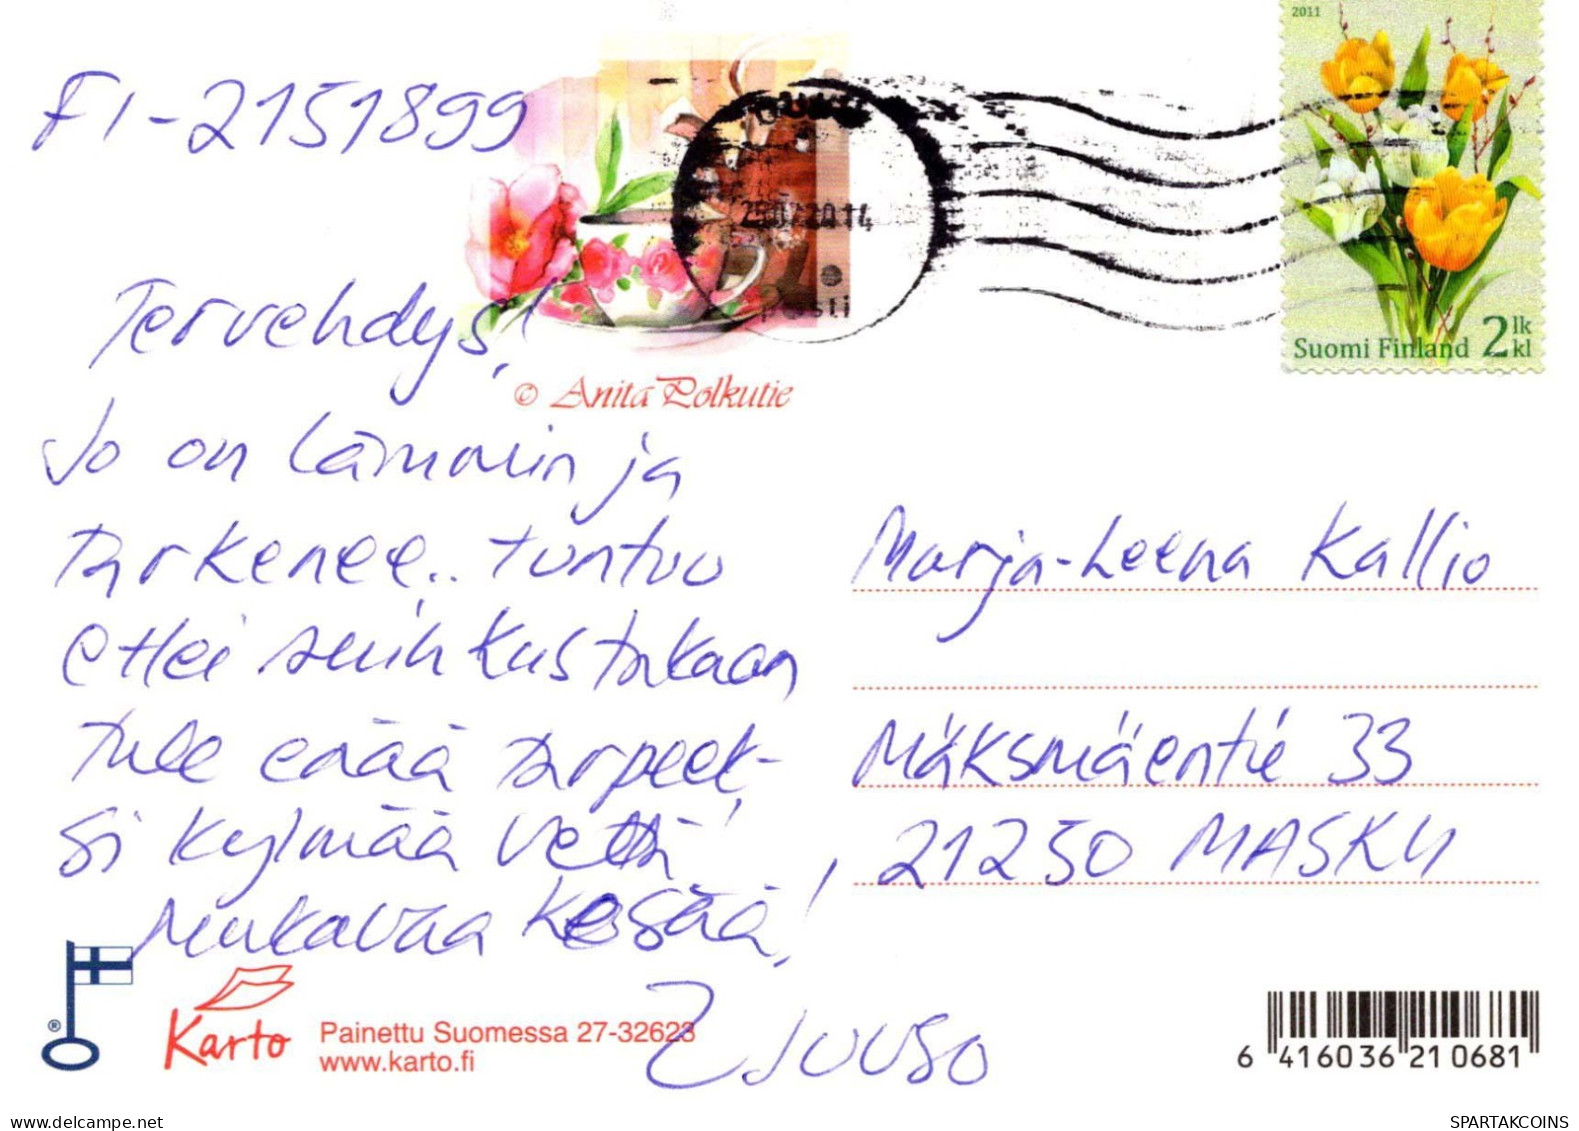 2011
FI-2151899
25.07.2014
posti
Suomi Finland 2 lk kl
Tervehdys!
© Anita Polkutie
Jo on lämmin ja
tarkenee.. tuntuu
ettei suihkustakaan
tule enää tarpeek-
si kylmää vettä!
Mukavaa kesää!
Marja-Leena Kallio
Mäksmäentie 33
21250 MASKU
Karto
Painettu Suomessa 27-32623
www.karto.fi
Juuso
6 416036 210681
www.delcampe.net
SPARTAKCOINS